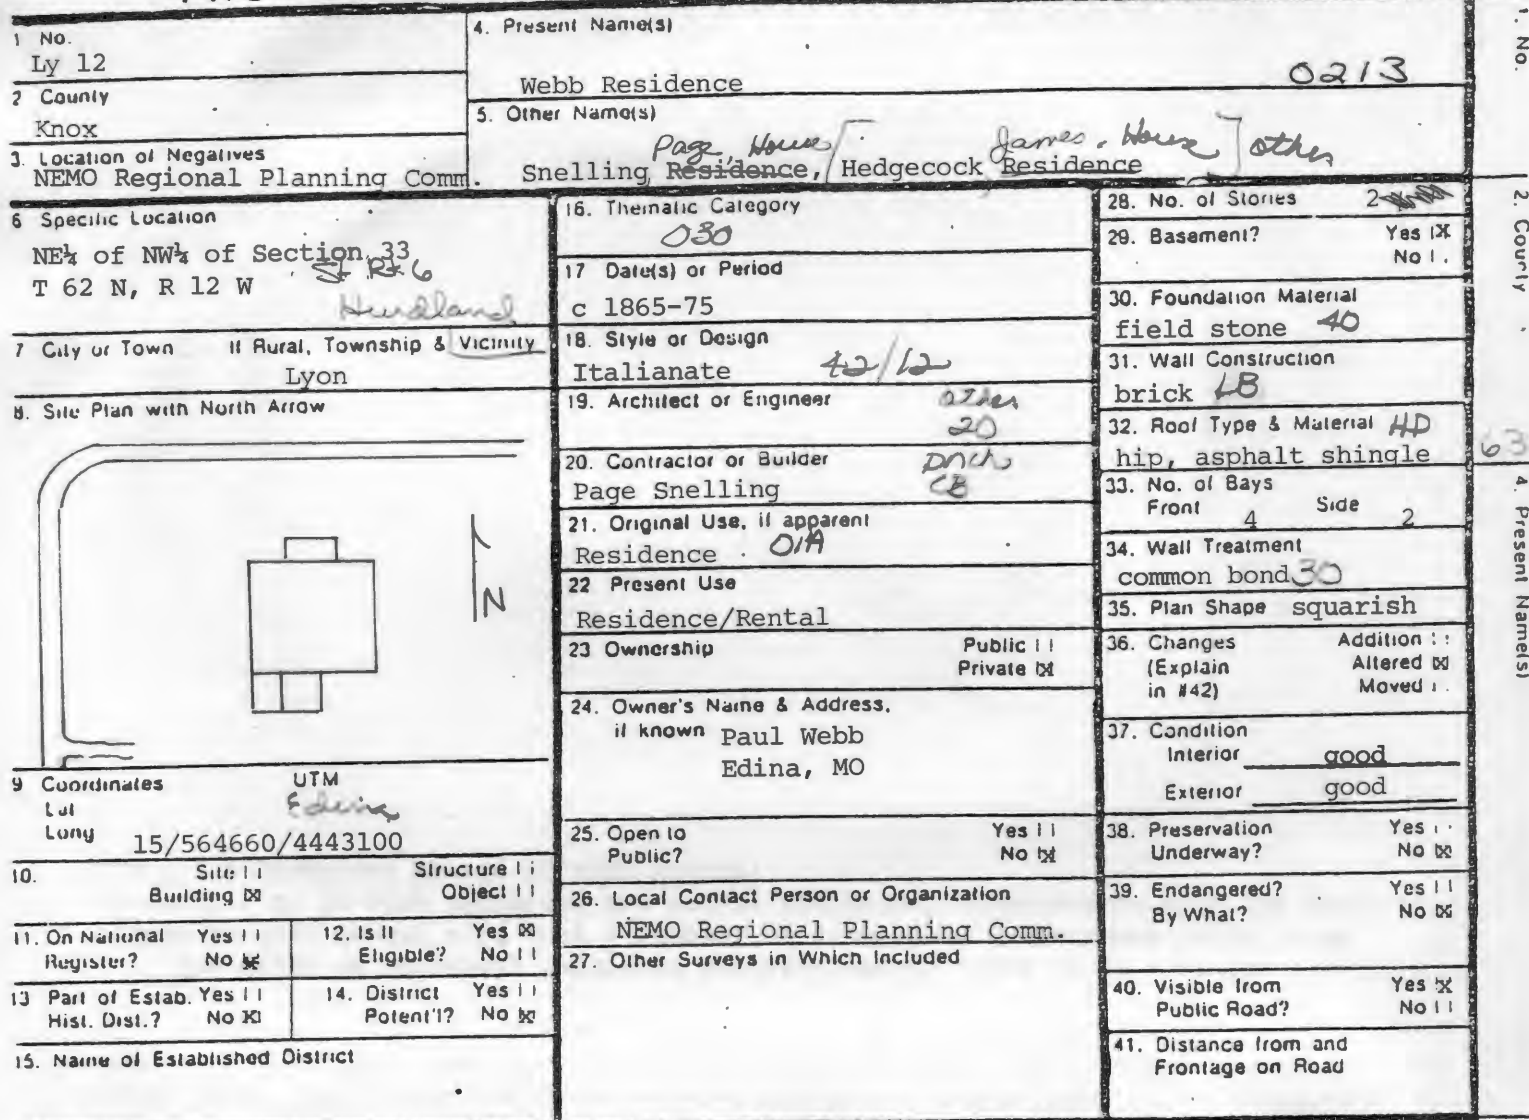 1 No.
Ly 12
2 County
Knox
3. Location of Negatives
NEMO Regional Planning Comm.
4. Present Name(s)
Webb Residence
0213
5. Other Name(s)
Page House James, House other
Snelling Residence, Hedgecock Residence
6 Specific Location
NE¼ of NW¼ of Section 33
St Rt 6
T 62 N, R 12 W
Hurdland
7 City or Town If Rural, Township & Vicinity
Lyon
8. Site Plan with North Arrow
N
9 Coordinates UTM
Lat Edina
Long 15/564660/4443100
10. Site | | Structure | |
Building [X] Object | |
11. On National Yes | |
Register? No [X]
12. Is It Yes [X]
Eligible? No | |
13 Part of Estab. Yes | |
Hist. Dist.? No [X]
14. District Yes | |
Potent'l? No [X]
15. Name of Established District
16. Thematic Category
030
17 Date(s) or Period
c 1865-75
18. Style or Design
Italianate 42/12
19. Architect or Engineer other
20
20. Contractor or Builder
Page Snelling CB
21. Original Use, if apparent
Residence 01A
22 Present Use
Residence/Rental
23 Ownership Public | |
Private [X]
24. Owner's Name & Address,
if known Paul Webb
Edina, MO
25. Open to Yes | |
Public? No [X]
26. Local Contact Person or Organization
NEMO Regional Planning Comm.
27. Other Surveys in Which Included
28. No. of Stories 2
29. Basement? Yes [X]
No | |
30. Foundation Material
field stone 40
31. Wall Construction
brick LB
32. Roof Type & Material HD
hip, asphalt shingle
33. No. of Bays
Front 4 Side 2
34. Wall Treatment
common bond 30
35. Plan Shape squarish
36. Changes Addition | |
(Explain Altered [X]
in #42) Moved | |
37. Condition
Interior good
Exterior good
38. Preservation Yes | |
Underway? No [X]
39. Endangered? Yes | |
By What? No [X]
40. Visible from Yes [X]
Public Road? No | |
41. Distance from and
Frontage on Road
1. No.
2. County
63
4. Present Name(s)